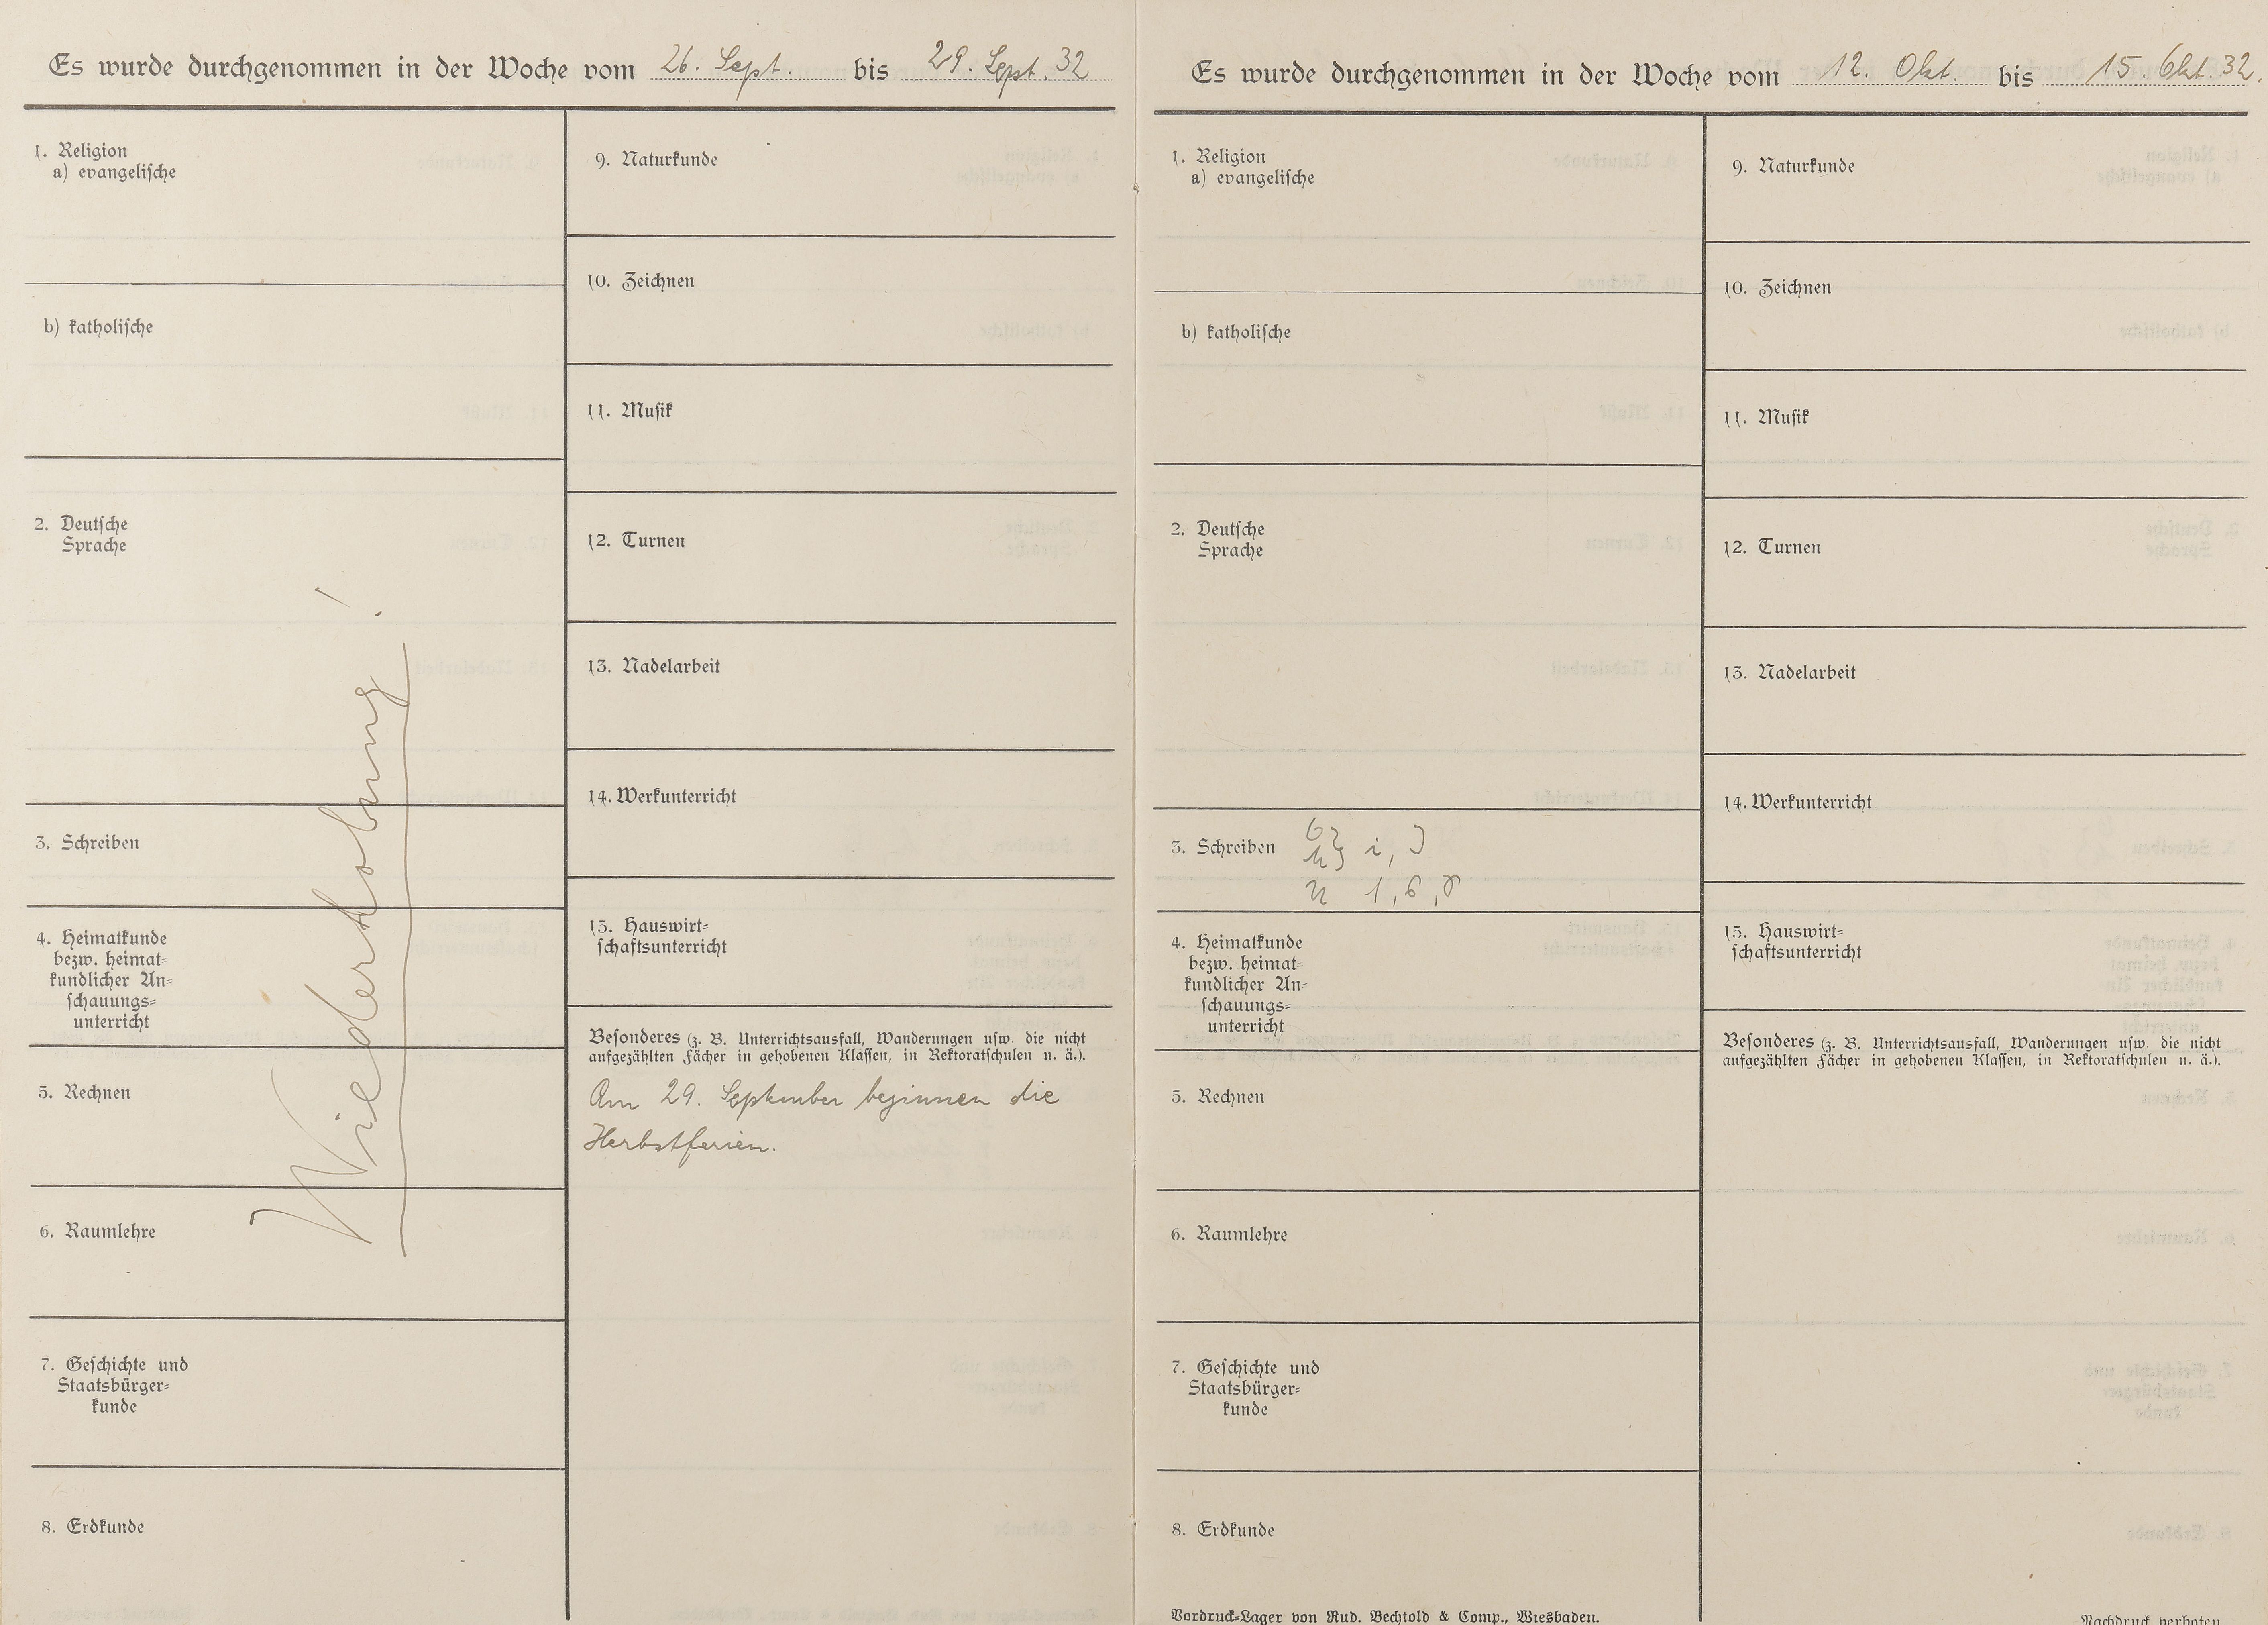 Es wurde durchgenommen in der Woche vom 26. Sept. bis 29. Sept. 32
1. Religion
a) evangelische
b) katholische
2. Deutsche
Sprache
3. Schreiben
4. Heimatkunde
bezw. heimat-
kundlicher An-
schauungs-
unterricht
5. Rechnen
6. Raumlehre
7. Geschichte und
Staatsbürger-
kunde
8. Erdkunde
Wiederholung!
9. Naturkunde
10. Zeichnen
11. Musik
12. Turnen
13. Nadelarbeit
14. Werkunterricht
15. Hauswirt-
schaftsunterricht
Besonderes (z. B. Unterrichtsausfall, Wanderungen usw. die nicht
aufgezählten Fächer in gehobenen Klassen, in Rektoratschulen u. ä.).
Am 29. September beginnen die
Herbstferien.
Es wurde durchgenommen in der Woche vom 12. Okt. bis 15. Okt. 32.
1. Religion
a) evangelische
b) katholische
2. Deutsche
Sprache
3. Schreiben
i,
1,
4. Heimatkunde
bezw. heimat-
kundlicher An-
schauungs-
unterricht
5. Rechnen
6. Raumlehre
7. Geschichte und
Staatsbürger-
kunde
8. Erdkunde
Vordruck-Lager von Rud. Bechtold & Comp., Wiesbaden.
9. Naturkunde
10. Zeichnen
11. Musik
12. Turnen
13. Nadelarbeit
14. Werkunterricht
15. Hauswirt-
schaftsunterricht
Besonderes (z. B. Unterrichtsausfall, Wanderungen usw. die nicht
aufgezählten Fächer in gehobenen Klassen, in Rektoratschulen u. ä.).
Nachdruck verboten